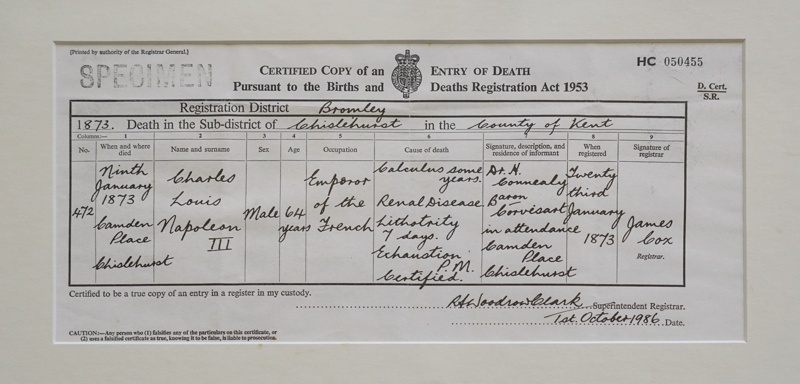 [Printed by authority of the Registrar General.]
HC 050455
SPECIMEN
CERTIFIED COPY of an ENTRY OF DEATH
Pursuant to the Births and Deaths Registration Act 1953
D. Cert.
S.R.
Registration District Bromley
1873. Death in the Sub-district of Chislehurst in the County of Kent
Columns:— 1 2 3 4 5 6 7 8 9
No. When and where died Name and surname Sex Age Occupation Cause of death Signature, description, and residence of informant When registered Signature of registrar
472
Ninth
January
1873
Camden
Place
Chislehurst
Charles
Louis
Napoleon
III
Male
64
years
Emperor
of the
French
Calculus some
years.
Renal Disease
Lithotrity
7 days.
Exhaustion
P.M.
Certified.
Dr. H.
Connealy
Baron
Corvisart
in attendance
Camden
Place
Chislehurst
Twenty
third
January
1873
James
Cox
Registrar.
Certified to be a true copy of an entry in a register in my custody.
Woodrow Clark Superintendent Registrar.
1st October 1986 Date.
CAUTION:—Any person who (1) falsifies any of the particulars on this certificate, or
(2) uses a falsified certificate as true, knowing it to be false, is liable to prosecution.